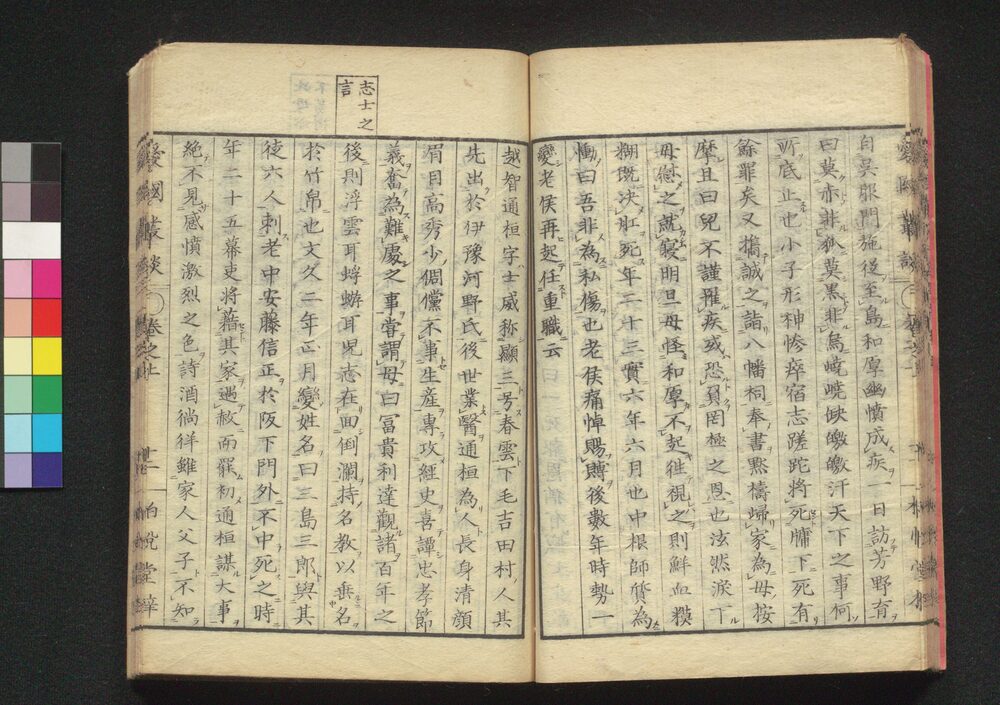 自吳服門施後至島和原幽憤成疾一日訪芳野育
曰莫赤非狐莫黒非烏嶢嶢缺皦皦汙天下之事何
所底止也小子形神慘瘁宿志蹉跎將死牖下死有
餘罪矣又攄誠之詣八幡祠奉書黙禱歸家為母按
摩且曰兒不謹罹疾或恐負罔極之恩也泫然淚下
母慰之就寢明旦母怪和原不起往視之則鮮血糢
糊既決肛死年二十三實六年六月也中根師質為
慟曰吾非為私傷也老侯痛悼賜賻後數年時勢一
變老侯再起任重職云
志士之
言
越智通桓字士威称顯三号春雲下毛吉田村人其
先出於伊豫河野氏後世業醫通桓為人長身清顔
眉目高秀少倜儻不事生産專攻經史喜譚忠孝節
義奮為難處之事嘗謂母曰冨貴利達觀諸百年之
後則浮雲耳蜉蝣耳児志在回倒瀾持名教以垂名
於竹帛也文久二年正月變姓名曰三島三郎與其
徒六人刺老中安藤信正於阪下門外不中死之時
年二十五幕吏將藉其家遇赦而罷初通桓謀大事
絶不見感憤激烈之色詩酒徜徉雖家人父子不知
愛國叢談 卷之上